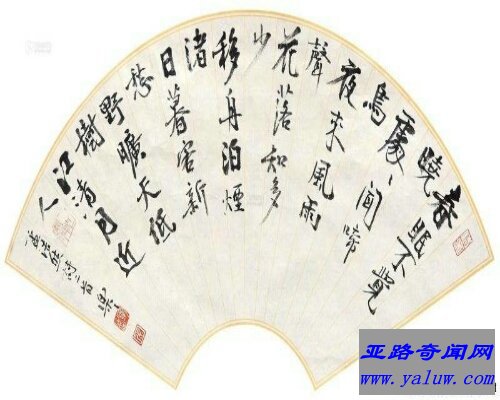 春眠不覺
曉
處、聞啼
鳥
夜來風雨
聲
花落知多
少
移舟泊煙
渚
日暮客新
愁
野曠天低
樹
江清月近
人
孟浩然詩二首
亚路奇闻网
www.yaluw.com